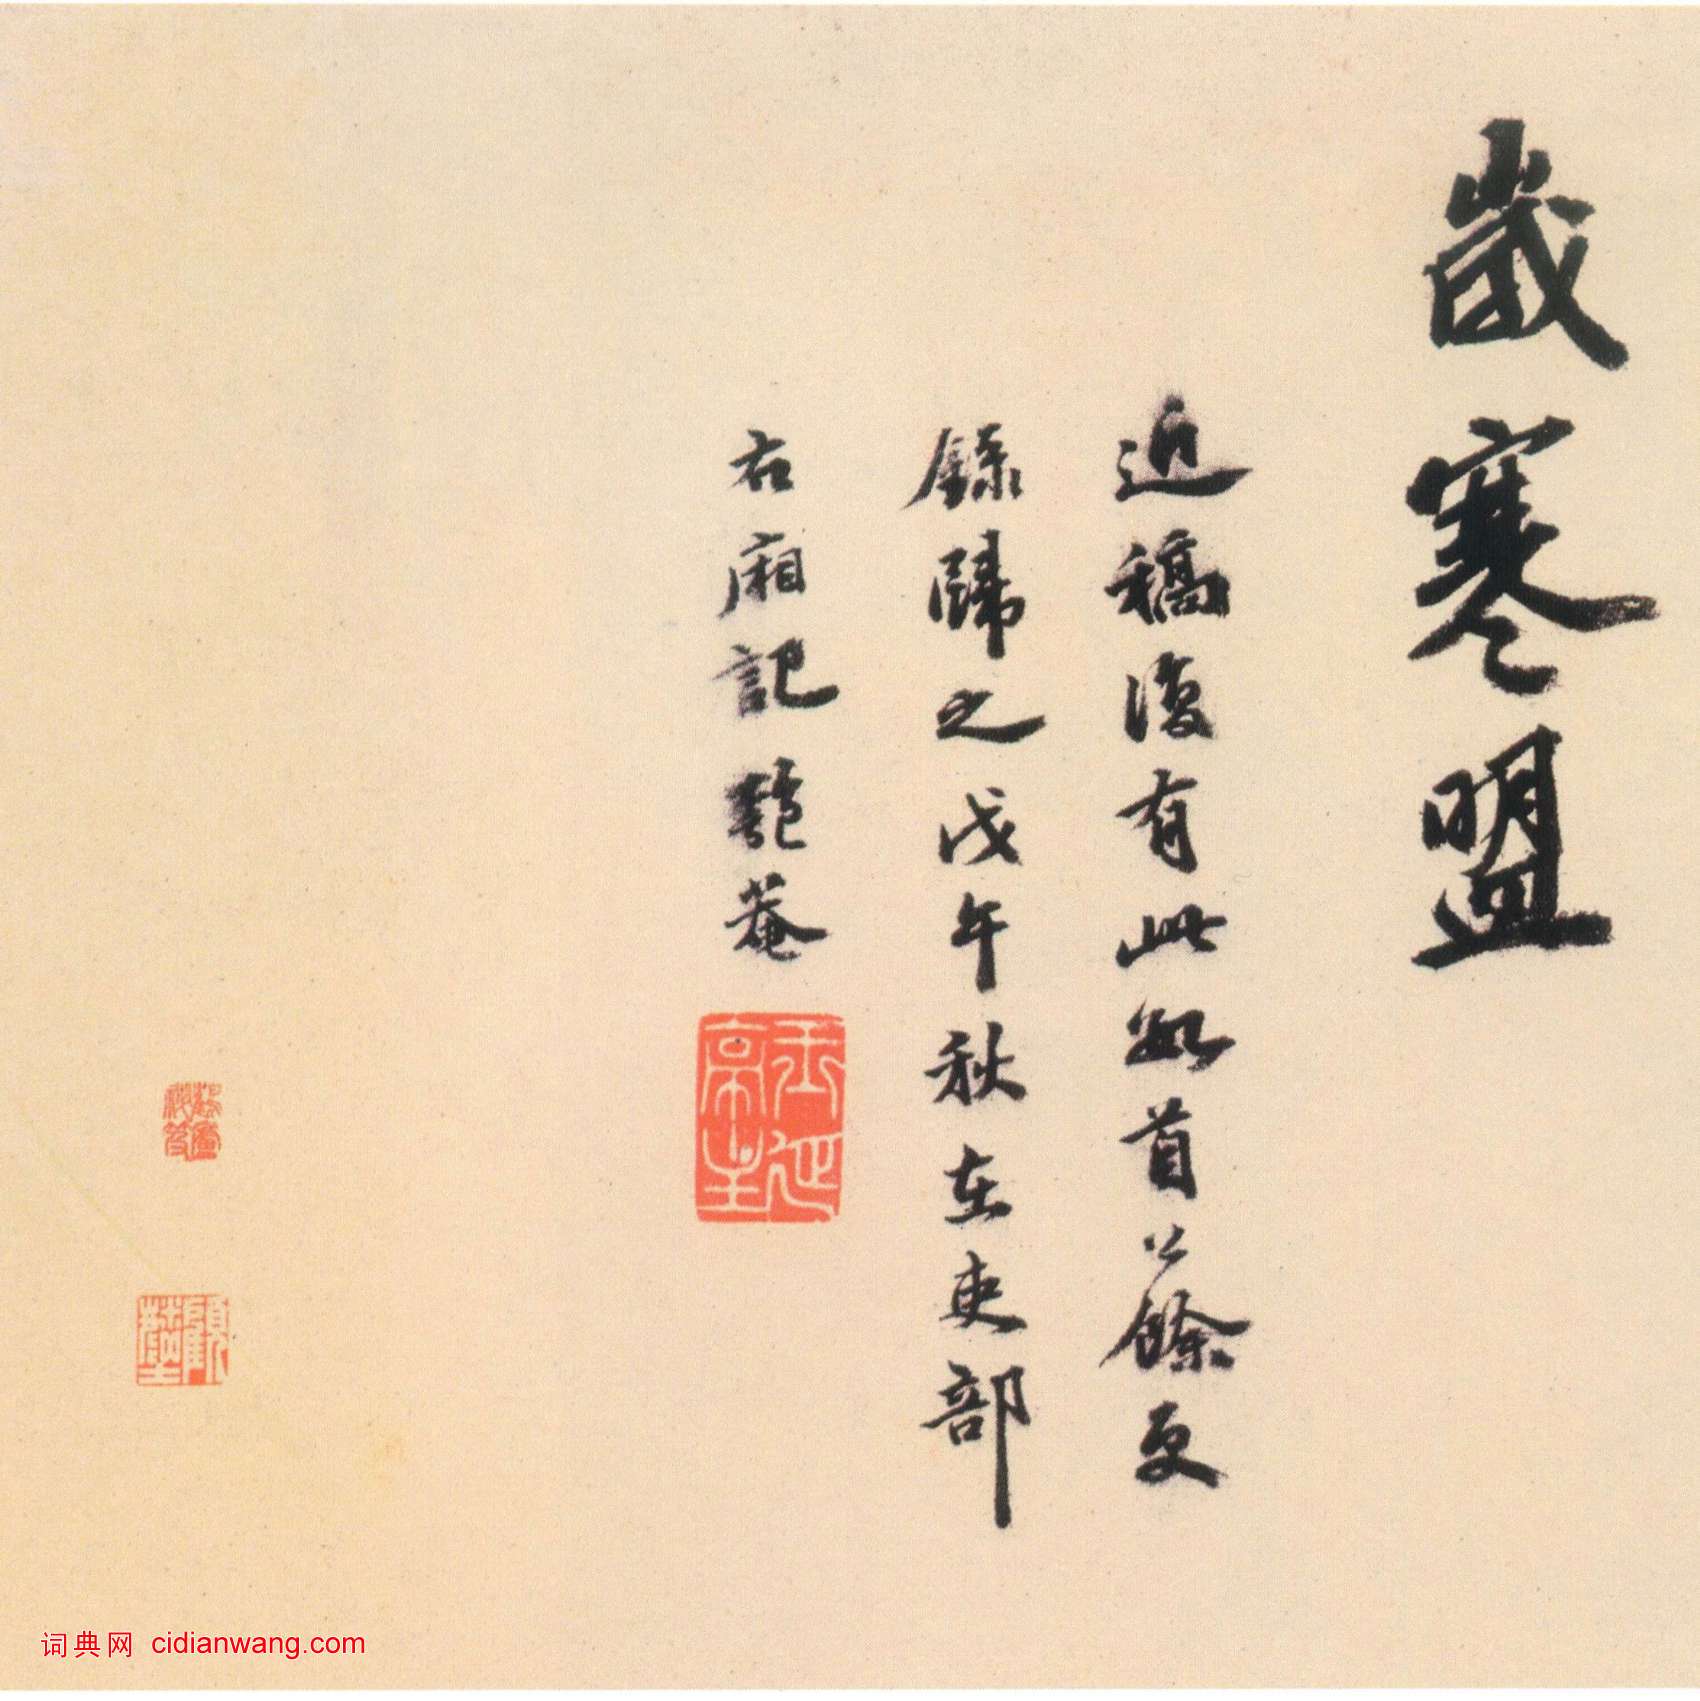 歲寒盟
近稿復有此數首公餘更
錄歸之戊午秋在吏部
右廂記匏菴
玉延亭主
词典网 cidianwang.com